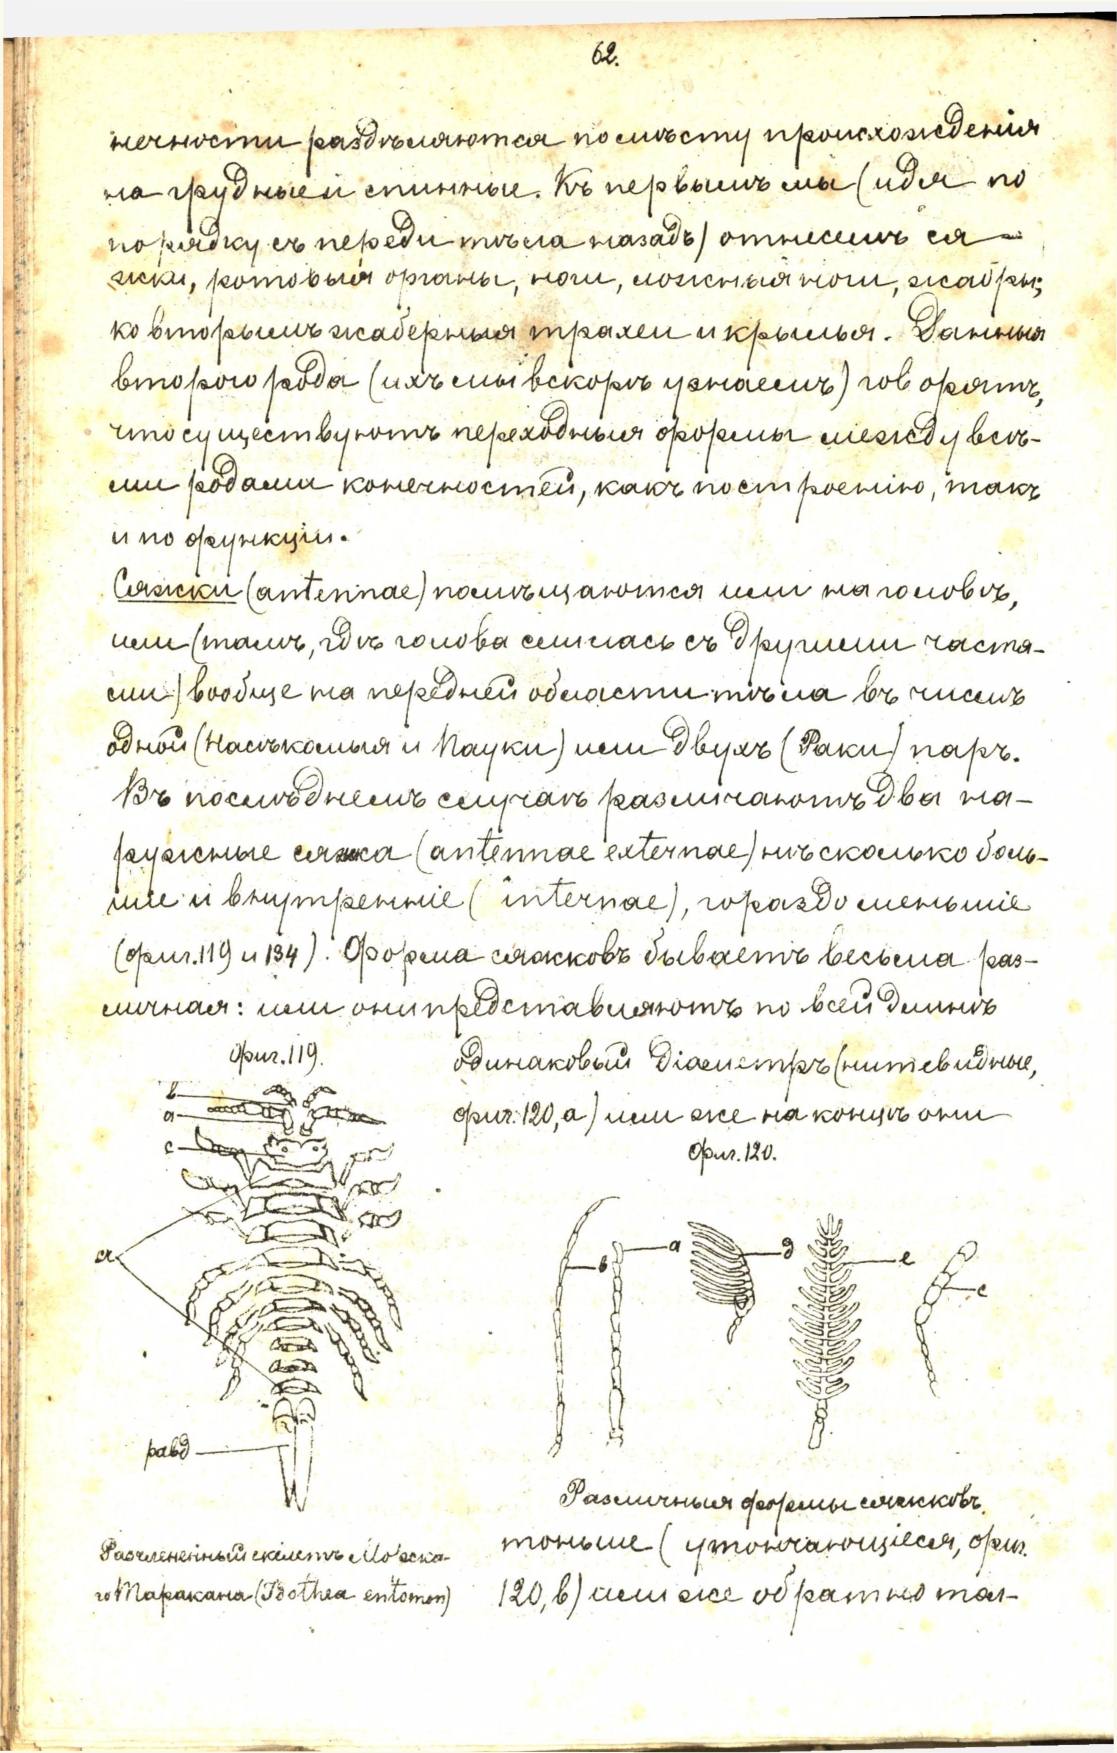 62.
нечности раздѣляются по мѣсту происхожденія
на грудные и спинные. Къ первымъ мы (идя по
порядку съ переди тѣла назадъ) отнесемъ ся-
жки, ротовыя органы, ноги, ложныя ноги, жабры;
ко вторымъ жаберныя трахеи и крылья. Данныя
второго рода (ихъ мы вскорѣ узнаемъ) говорятъ,
что существуютъ переходныя формы между всѣ-
ми родами конечностей, какъ по строенію, такъ
и по функціи.
Сяжки (antennae) помѣщаются или на головѣ,
или (тамъ, гдѣ голова слилась съ другими частя-
ми) вообще на передней области тѣла въ числѣ
одной (Насѣкомыя и Пауки) или двухъ (Раки) паръ.
Въ послѣднемъ случаѣ различаютъ два на-
ружные сяжка (antennae externae) нѣсколько боль-
шіе и внутренніе (internae), гораздо меньшіе
(фиг. 119 и 134). Форма сяжковъ бываетъ весьма раз-
личная: или они представляютъ по всей длинѣ
фиг. 119.
одинаковый діаметръ (нитевидные,
фиг. 120, а) или же на концѣ они
фиг. 120.
b
a
c
d
равд
в
а
д
е
с
Различныя формы сяжковъ.
Расчлененный скелетъ Морска-
го Таракана (Idothea entomon)
тоньше (утончающіеся, фиг.
120, в) или же обратно тол-